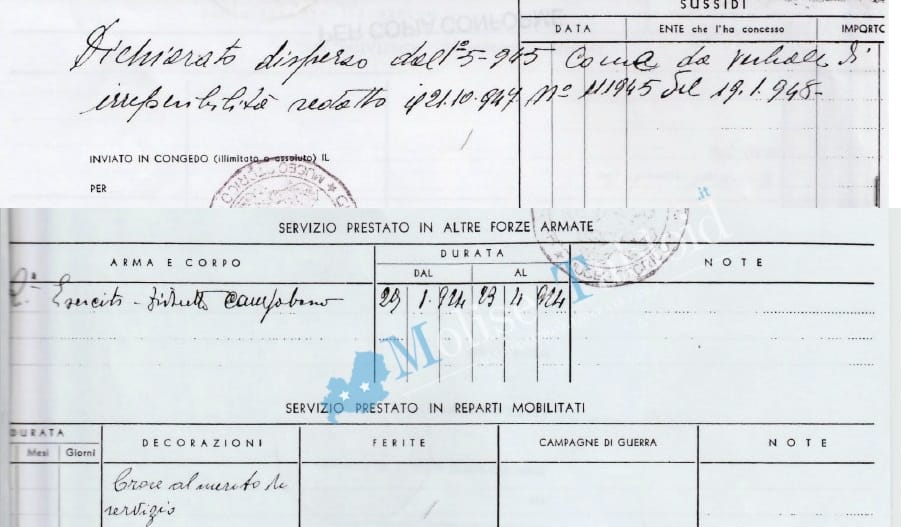 SUSSIDI
PER COPIA CONFORME
DATA ENTE che l'ha concesso IMPORTO
Dichiarato disperso dall'1°-5-945 come da verbale di
irreperibilità redatto il 21.10.947 N° 111945 del 19.1.948-
INVIATO IN CONGEDO (illimitato o assoluto) IL
PER
MUSEO STORICO
SERVIZIO PRESTATO IN ALTRE FORZE ARMATE
ARMA E CORPO DURATA NOTE
DAL AL
Esercito - Distretto Campobasso 29 1 924 23 4 924
MoliseTabloid.it
SERVIZIO PRESTATO IN REPARTI MOBILITATI
DURATA DECORAZIONI FERITE CAMPAGNE DI GUERRA NOTE
Mesi Giorni
Croce al merito di
servizio